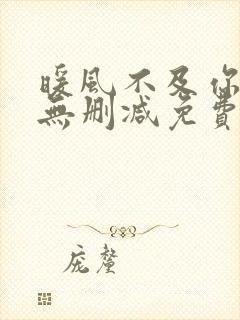 暖風不及你
無刪減免費
庞鳌